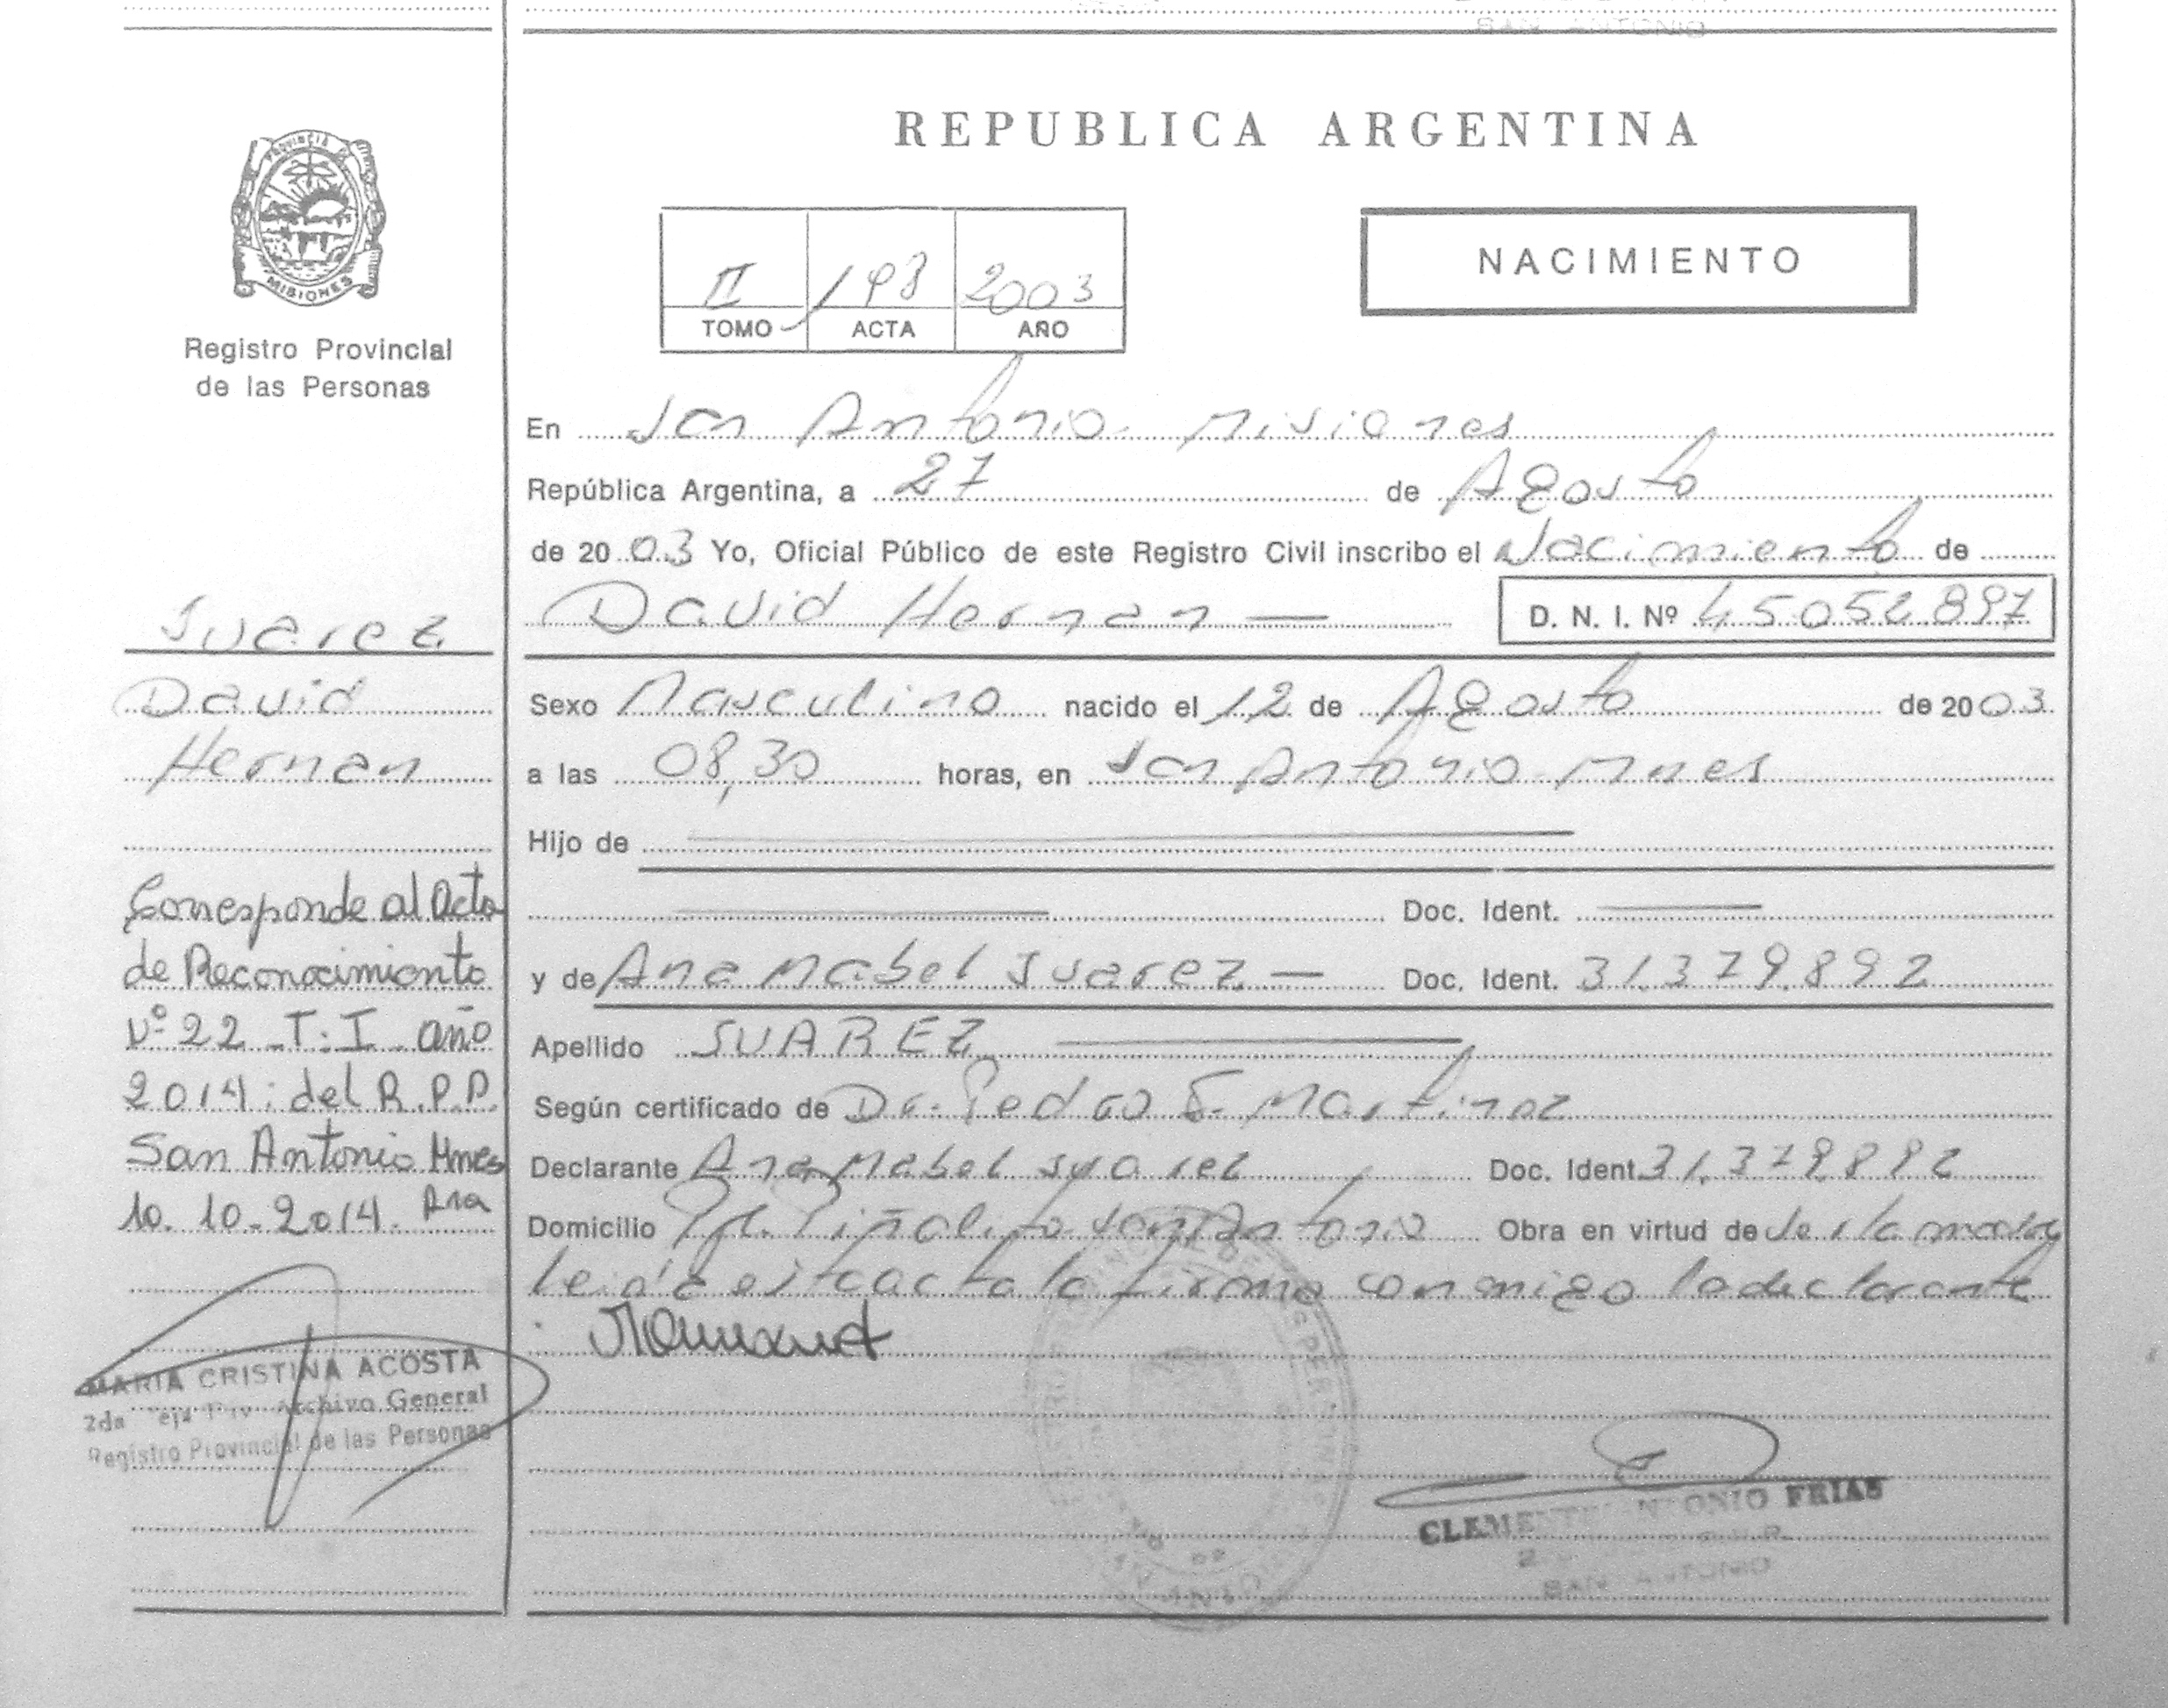 SAN ANTONIO
PROVINCIA DE
MISIONES
Registro Provincial
de las Personas
Suarez
David
Hernan
Corresponde al Acta
de Reconocimiento
Nº 22 T: I año
2014: del R.P.P.
San Antonio Mnes
10.10.2014.
MARIA CRISTINA ACOSTA
2da Archivo General
Registro Provincial de las Personas
REPUBLICA ARGENTINA
II 193 2003
TOMO ACTA AÑO
NACIMIENTO
En San Antonio Misiones
República Argentina, a 27 de Agosto
de 20 03 Yo, Oficial Público de este Registro Civil inscribo el Nacimiento de
David Hernan — D. N. I. Nº 45.052.897
Sexo Masculino nacido el 12 de Agosto de 20 03
a las 08,30 horas, en San Antonio Mnes
Hijo de
Doc. Ident.
y de Ana Mabel Suarez — Doc. Ident. 31.379.892
Apellido SUAREZ
Según certificado de Dr. Pedro E. Martinez
Declarante Ana Mabel Suarez Doc. Ident. 31.379.892
Domicilio Piñalito San Antonio Obra en virtud de ser la madre
leida esta acta la firma conmigo la declarante
CLEMENTE ANTONIO FRIAS
SAN ANTONIO